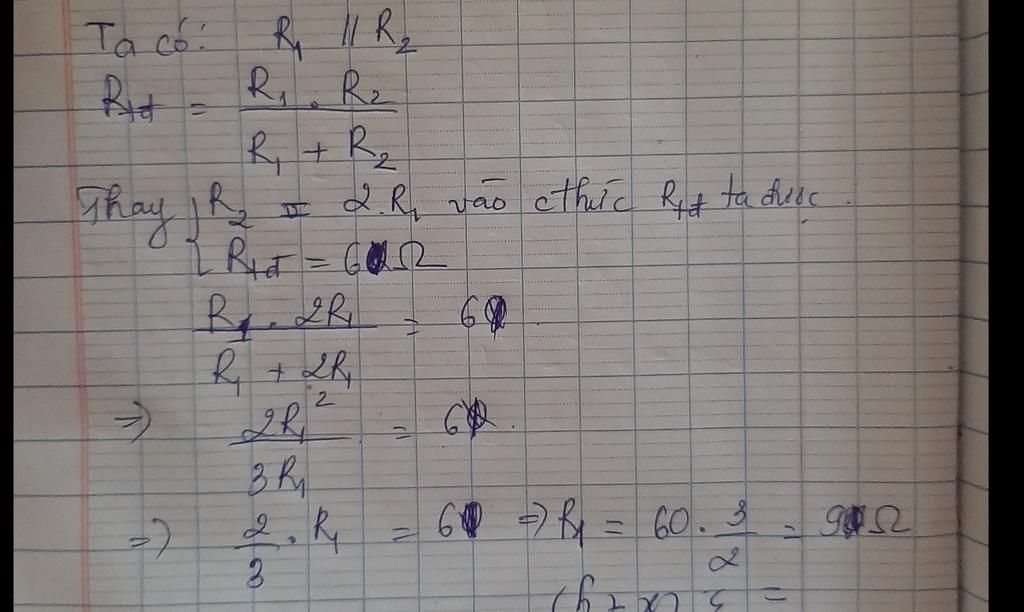 Ta có: R₁ // R₂
Rtđ = (R₁ . R₂) / (R₁ + R₂)
Thay { R₂ = 2.R₁ vào cthức Rtđ ta được.
Rtđ = 6 Ω
(R₁ . 2R₁) / (R₁ + 2R₁) = 6
=> 2R₁² / 3R₁ = 6
=> 2/3 . R₁ = 6 => R₁ = 60 . 3/2 = 9 Ω